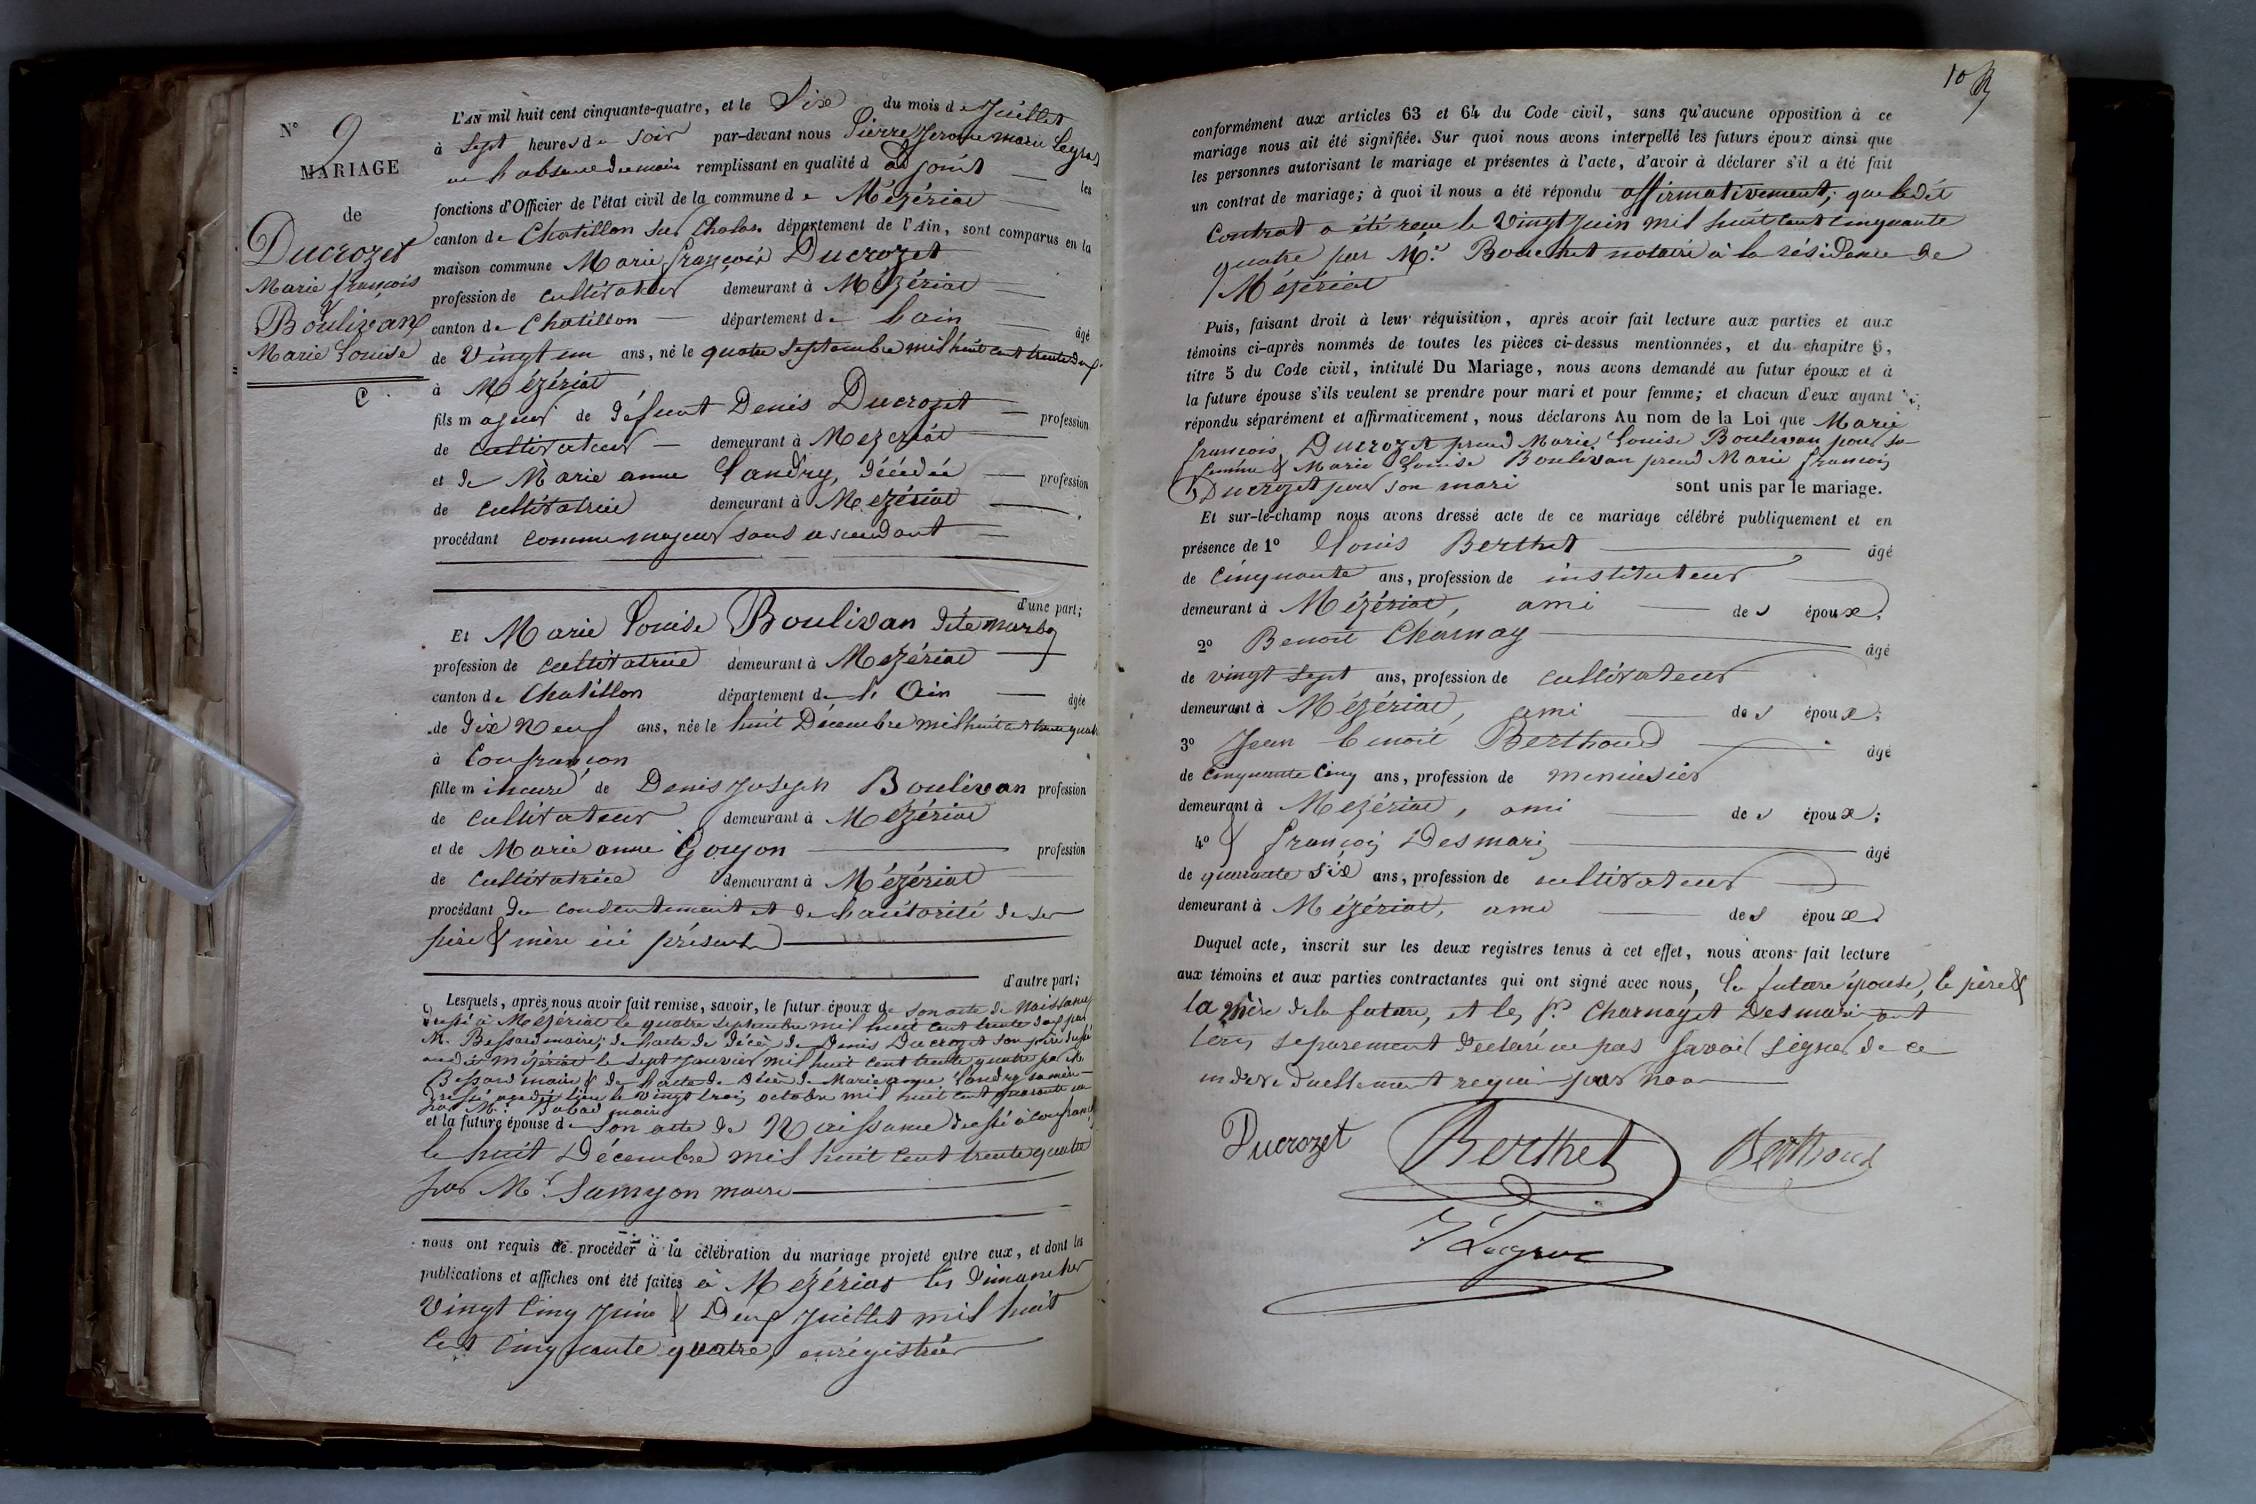 N° 9
MARIAGE
de
Ducrozet
Marie françois
&
Boulivan
Marie Louise
C
L'AN mil huit cent cinquante-quatre, et le Six du mois de Juillet
à Sept heures de soir par-devant nous Pierre Jerome marie
en l'absence du maire remplissant en qualité d'adjoint les
fonctions d'Officier de l'état civil de la commune de Mézériat
canton de Chatillon sur Chalar. département de l'Ain, sont comparus en la
maison commune Marie françois Ducrozet
profession de cultivateur demeurant à Mézériat
canton de Chatillon département de l'ain âgé
de Vingt un ans, né le quatre Septembre mil huit cent trente deux
à Mézériat
fils majeur de défunt Denis Ducrozet profession
de cultivateur demeurant à Mezeriat
et de Marie anne Landry, décédée profession
de cultivatrice demeurant à Mezériat
procédant comme majeur sans ascendant
d'une part;
Et Marie Louise Boulivan dite marby
profession de cultivatrice demeurant à Mezériat
canton de Chatillon département de l'Ain âgée
de dix Neuf ans, née le huit Décembre mil huit cent trente quatre
à Confrançon
fille mineure de Denis Joseph Boulivan profession
de cultivateur demeurant à Mézériat
et de Marie anne Goujon profession
de cultivatrice demeurant à Mézériat
procédant du consentement et de l'autorité de ses
père & mère ici présents
d'autre part;
Lesquels, après nous avoir fait remise, savoir, le futur époux de son acte de Naissance
dressé à Mézériat le quatre Septembre mil huit cent trente deux par
M. Bessard maire; de l'acte de décès de Denis Ducrozet son père dressé
audit Mézériat le sept Janvier mil huit cent trente quatre par M.
Bessard maire & de l'acte de décès de Marie anne Landry sa mère
dressé audit lieu le vingt trois octobre mil huit cent quarante un
par M. Babad maire
et la future épouse de son acte de Naissance dressé à confrançon
le huit Décembre mil huit cent trente quatre
par Mr Samyon maire
nous ont requis de procéder à la célébration du mariage projeté entre eux, et dont les
publications et affiches ont été faites à Mezériat les Dimanches
Vingt Cinq Juin & Deux Juillet mil huit
Cent Cinquante quatre, enrégistrées
10
conformément aux articles 63 et 64 du Code civil, sans qu'aucune opposition à ce
mariage nous ait été signifiée. Sur quoi nous avons interpellé les futurs époux ainsi que
les personnes autorisant le mariage et présentes à l'acte, d'avoir à déclarer s'il a été fait
un contrat de mariage; à quoi il nous a été répondu affirmativement; que ledit
Contrat a été reçu le Vingt juin mil huit cent Cinquante
quatre par Me. Bouchet notaire à la résidence de
Mézériat
Puis, faisant droit à leur réquisition, après avoir fait lecture aux parties et aux
témoins ci-après nommés de toutes les pièces ci-dessus mentionnées, et du chapitre 6,
titre 5 du Code civil, intitulé Du Mariage, nous avons demandé au futur époux et à
la future épouse s'ils veulent se prendre pour mari et pour femme; et chacun d'eux ayant
répondu séparément et affirmativement, nous déclarons Au nom de la Loi que Marie
françois Ducrozet prend Marie Louise Boulivan pour sa
femme & Marie Louise Boulivan prend Marie françois
Ducrozet pour son mari sont unis par le mariage.
Et sur-le-champ nous avons dressé acte de ce mariage célébré publiquement et en
présence de 1° Louis Berthet âgé
de Cinquante ans, profession de instituteur
demeurant à Mézériat, ami des époux;
2° Benoit Charnay âgé
de vingt Sept ans, profession de cultivateur
demeurant à Mézériat, ami des époux;
3° Jean benoit Berthoud âgé
de Cinquante Cinq ans, profession de menuisier
demeurant à Mezériat, ami des époux;
4° & françois Desmaris âgé
de quarante Six ans, profession de cultivateur
demeurant à Mézériat, ami des époux
Duquel acte, inscrit sur les deux registres tenus à cet effet, nous avons fait lecture
aux témoins et aux parties contractantes qui ont signé avec nous, la future épouse, le père &
la Mère de la future, et les Srs Charnay et Desmaris ont
tous séparement declaré ne pas Savoir Signer de ce
enquis par nous
Ducrozet Berthet Berthoud